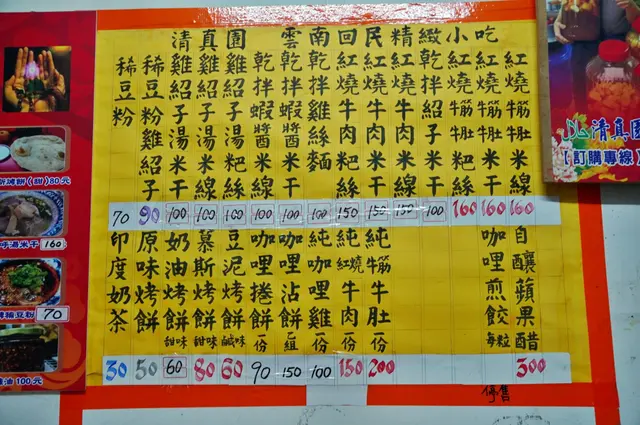 清真園 雲南回民精緻小吃
稀豆粉 70
稀豆粉雞紹子 90
雞紹子湯米干 100
雞紹子湯米線 100
雞紹子湯粑絲 100
乾拌蝦醬米線 100
乾拌蝦醬米干 100
乾拌雞絲麵 100
紅燒牛肉粑絲 150
紅燒牛肉米干 150
紅燒牛肉米線 150
乾拌紹子米干 100
紅燒牛筋牛肚粑絲 160
紅燒牛筋牛肚米干 160
紅燒牛筋牛肚米線 160
印度奶茶 30
原味烤餅 50
奶油烤餅 甜味 60
慕斯烤餅 甜味 80
豆泥烤餅 鹹味 60
咖哩捲餅 一份 90
咖哩沾餅 一組 150
純咖哩雞 一份 100
純紅燒牛肉 一份 150
純牛筋牛肚 一份 200
咖哩煎餃 每粒
停售
自釀蘋果醋 300
餅(甜)80元
湯米干 160
豆粉 70
油100元
清真園
【訂購專線